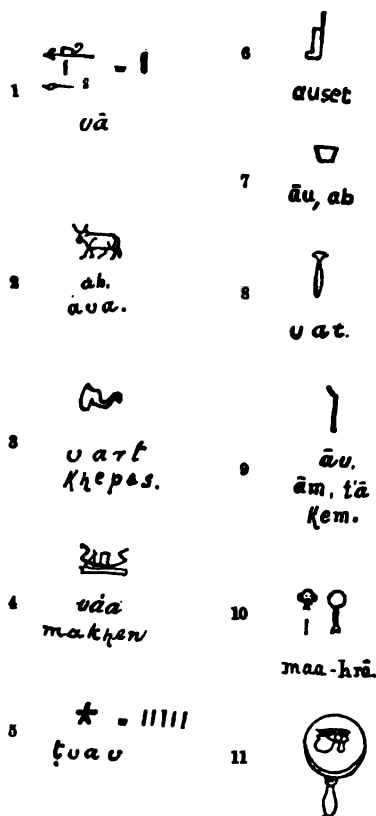 1
= I
vā
2
ab.
ȧva.
3
vart
Khepes.
4
vȧa
makhen
5
* = IIIII
ṭvav
6
auset
7
āu, ab
8
vat.
9
āv.
ām, t'ā
Kem.
10
maa-hrā.
11